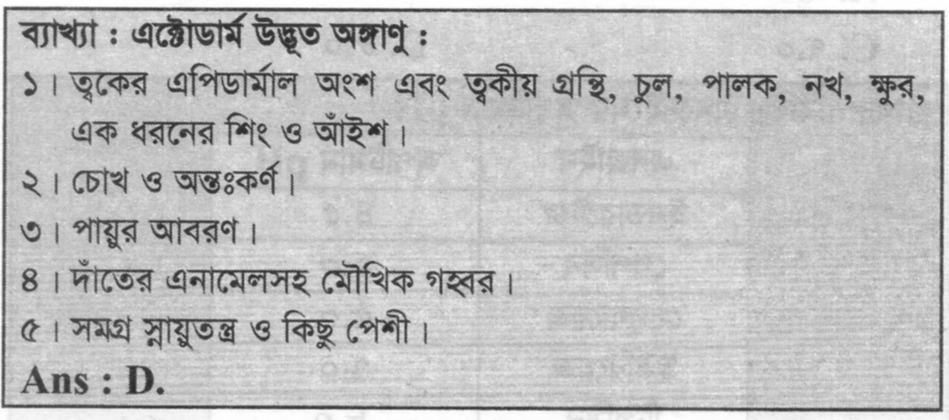 ব্যাখ্যা : এক্টোডার্ম উদ্ভূত অঙ্গাণু :
১। ত্বকের এপিডার্মাল অংশ এবং ত্বকীয় গ্রন্থি, চুল, পালক, নখ, ক্ষুর,
এক ধরনের শিং ও আঁইশ।
২। চোখ ও অন্তঃকর্ণ।
৩। পায়ুর আবরণ।
৪। দাঁতের এনামেলসহ মৌখিক গহ্বর।
৫। সমগ্র স্নায়ুতন্ত্র ও কিছু পেশী।
Ans : D.